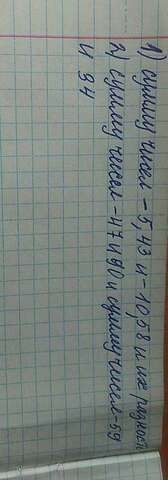 1) сумму чисел -5,43 и -10,58 и их разность
2) сумму чисел -47 и 90 и сумму чисел -59
и 34